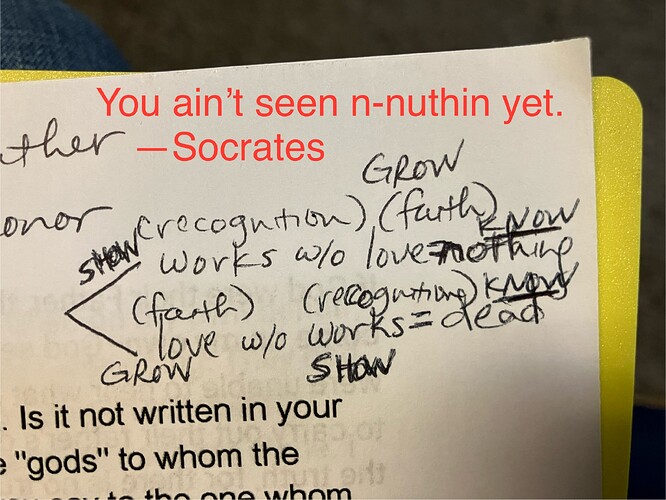 You ain't seen n-nuthin yet.
—Socrates
ather
GROW
onor (recognition) (faith) KNOW
SHOW works w/o love=nothing
(faith) (recognition) KNOW
love w/o works = dead
GROW SHOW
. Is it not written in your
e "gods" to whom the
you say to the one whom